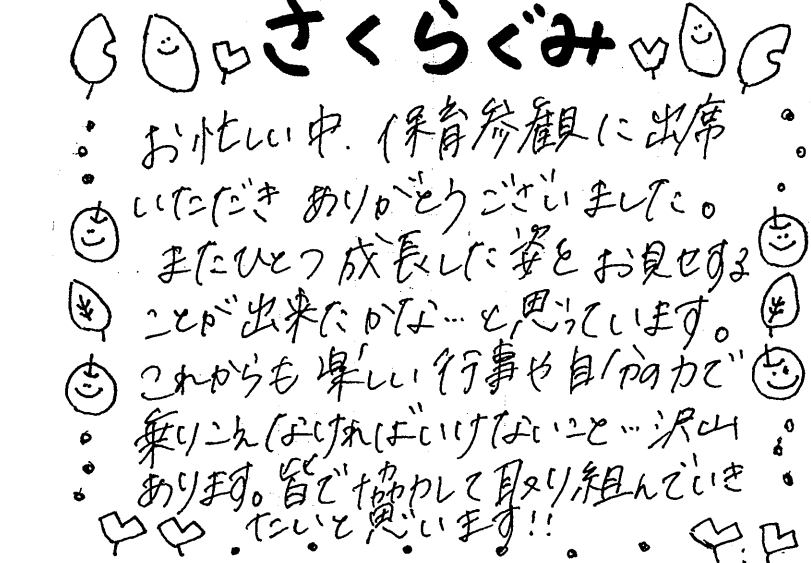 さくらぐみ
お忙しい中、保育参観に出席
いただき ありがとうございました。
またひとつ成長した姿をお見せする
ことが出来たかな…と思っています。
これからも楽しい行事や自分の力で
乗りこえなければいけないこと…沢山
あります。皆で協力して取り組んでいき
たいと思います!!